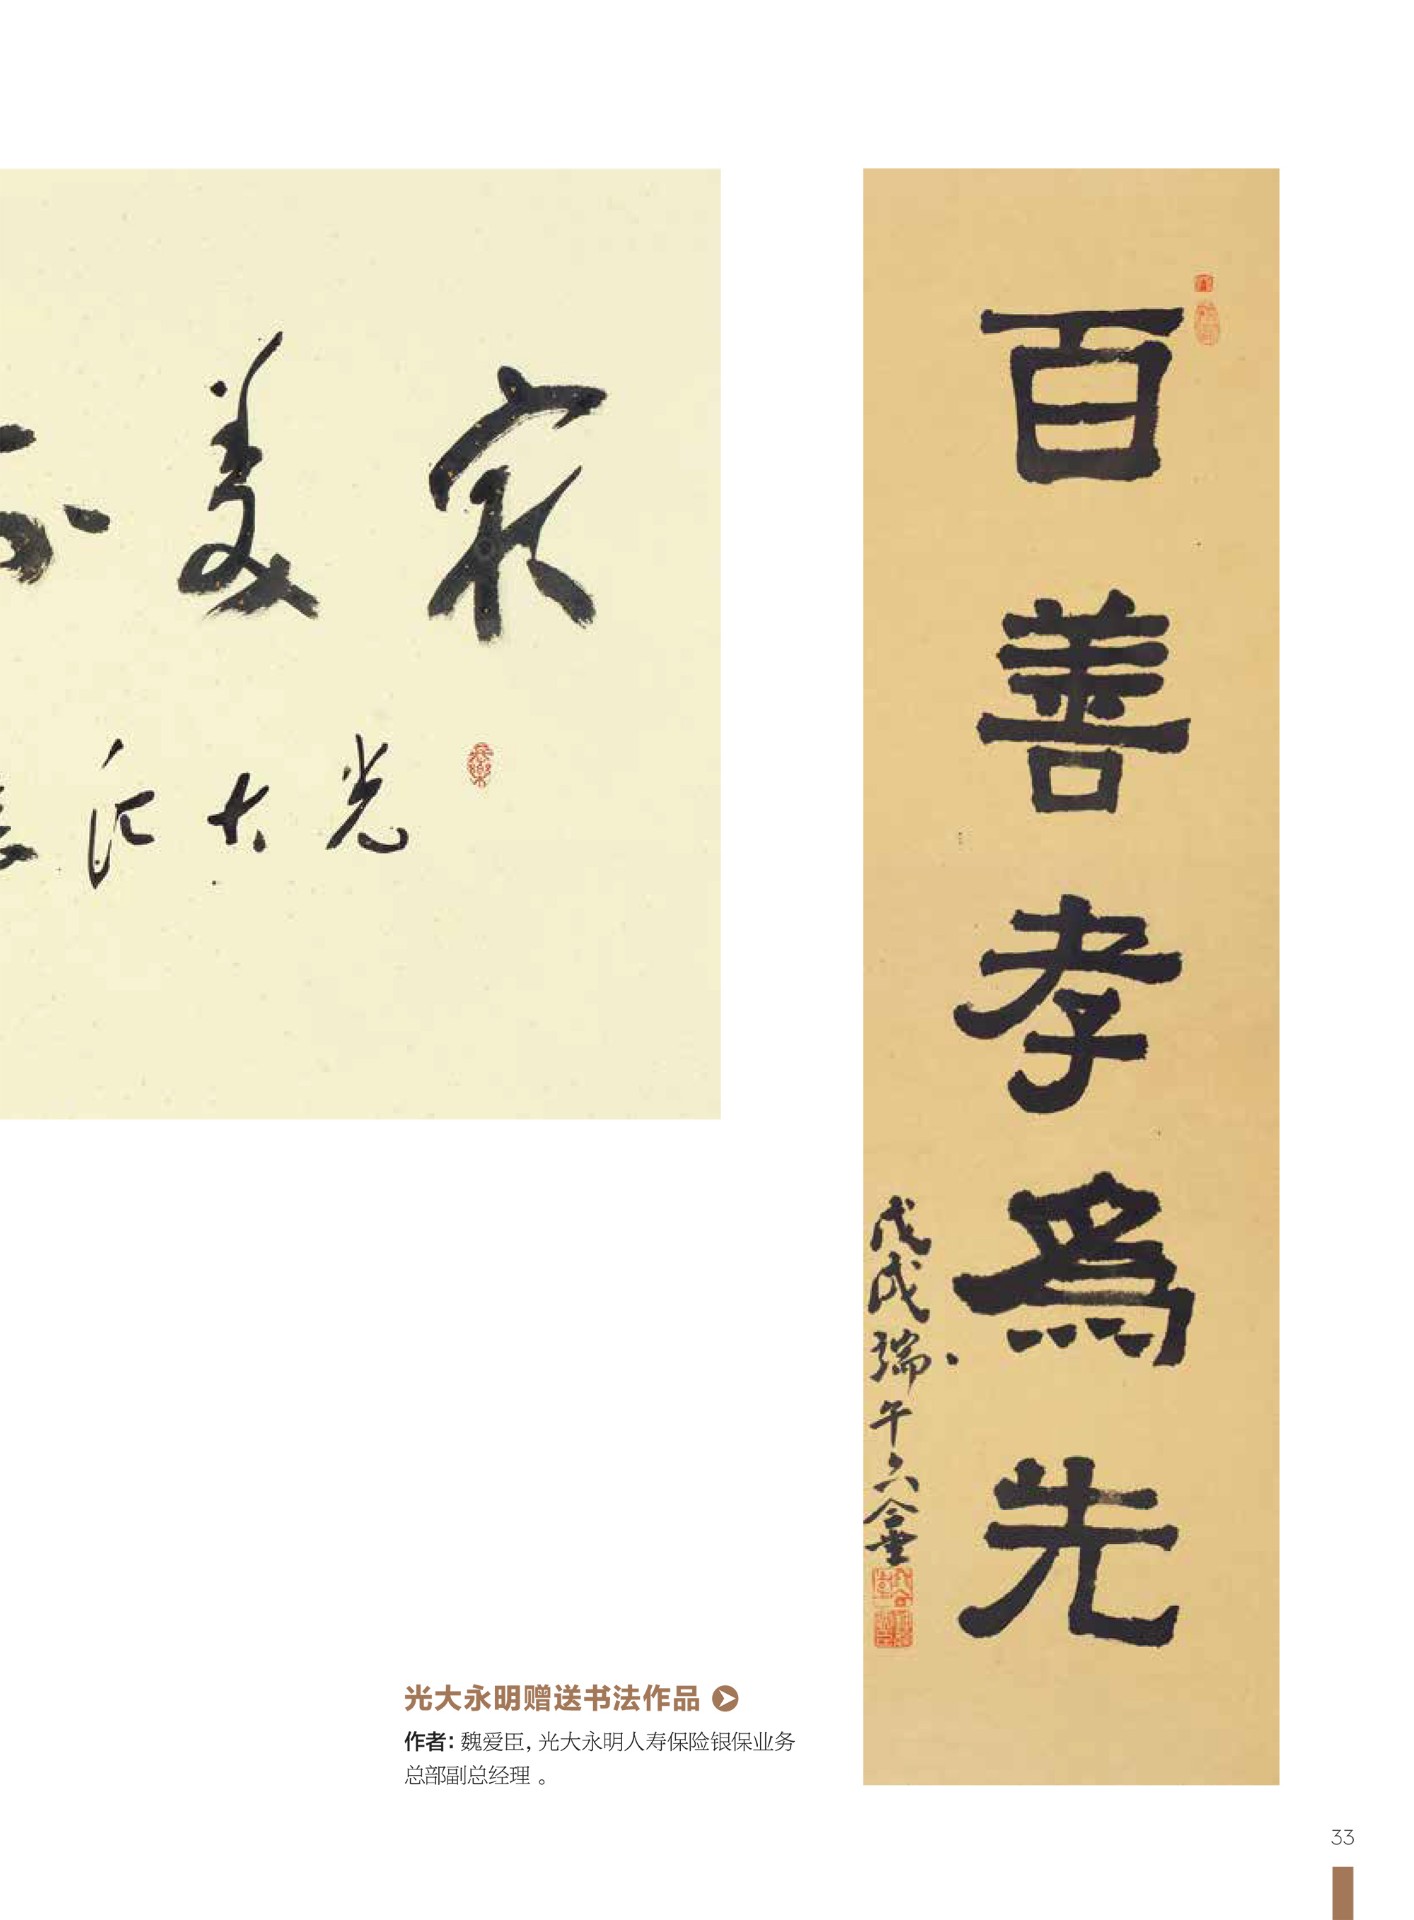 最美
光大
百善孝為先
戊戌端午六合堂
光大永明赠送书法作品
作者：魏爱臣，光大永明人寿保险银保业务
总部副总经理 。
33